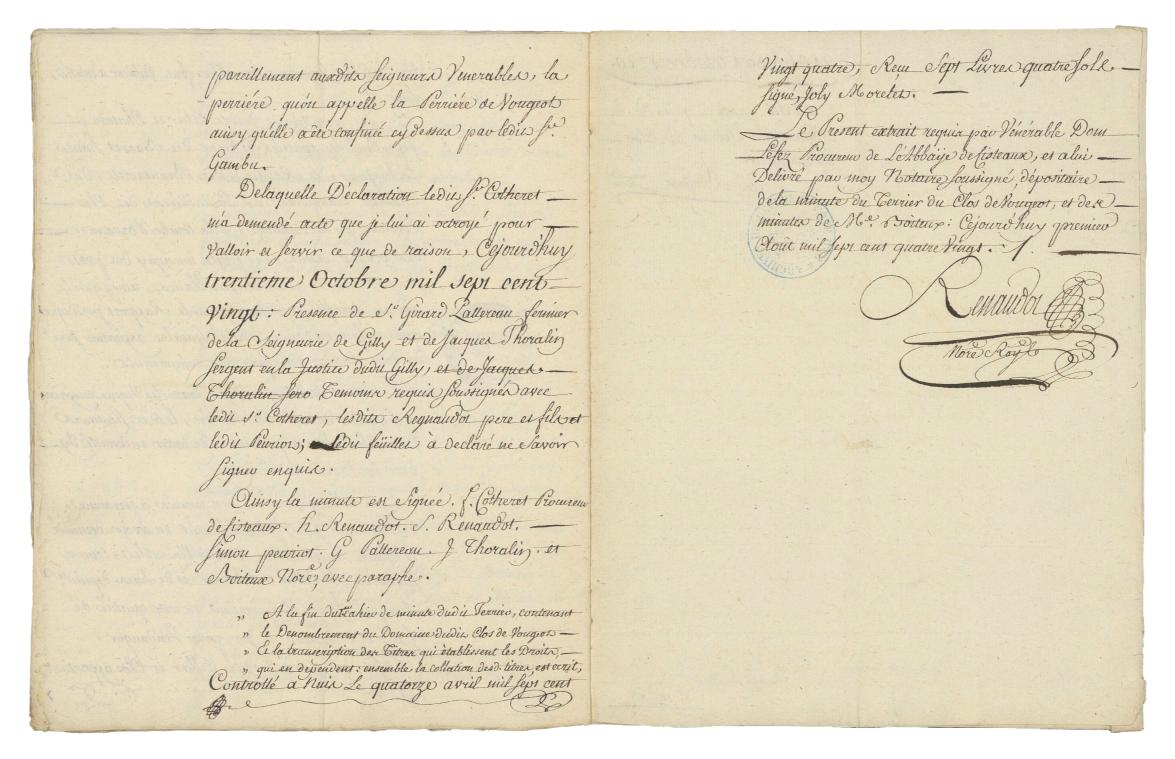 pareillement auxdits Seigneurs Venerables, la
perriére qu'on appelle la Perriére de Vougeot
ainsy qu'elle a été confinée cy dessus par ledit Sr.
Gambu.
Delaquelle Déclaration ledit Sr. Cotheret
m'a demendé acte que je lui ai octroyé pour
valloir et servir ce que de raison, Cejourd'huy
trentieme Octobre mil sept cent
vingt: Presence de Sr. Girard Pattereau fermier
de la Seigneurie de Gilly et de Jacques Thoralin
Sergent en la Justice dudit Gilly, et de Jacques
Thoralin Temoins requis soussignés avec
ledit Sr. Cotheret, lesdits Regnaudot pere et fils et
ledit Peuriot; Ledit feüillet à declaré ne Savoir
signer enquis.
Ainsy la minute est Signée. f. Cotheret Procureur
de Cisteaux. h. Renaudot. S. Renaudot.
Simon peuriot. G Pattereau. J Thoralin. et
Boiteux Nore, avec paraphe.
„ A la fin du cahier de minute dudit Terrier, contenant
„ le Denombrement du Domaine dudit Clos de Vougeot
„ Et la transcription des Titres qui établissent les Droits
„ qui en dependent: ensemble la collation desd. titres, est ecrit,
Controllé a Nuis Le quatorze avril mil sept cent
Vingt quatre, Reçu Sept Livres quatre sols
signé, Joly Morelet.
Le Present extrait requis par Vénérable Dom
Lefez Procureur de L'Abbaÿe de Cisteaux, et a lui
Delivré par moy Notaire soussigné, dépositaire
de la minute du Terrier du Clos de Vougeot, et des
minutes de Me. Boiteux: Cejourd'huy premier
Aoüt mil sept cent quatre vingt.
Renaudot
Nore Royl